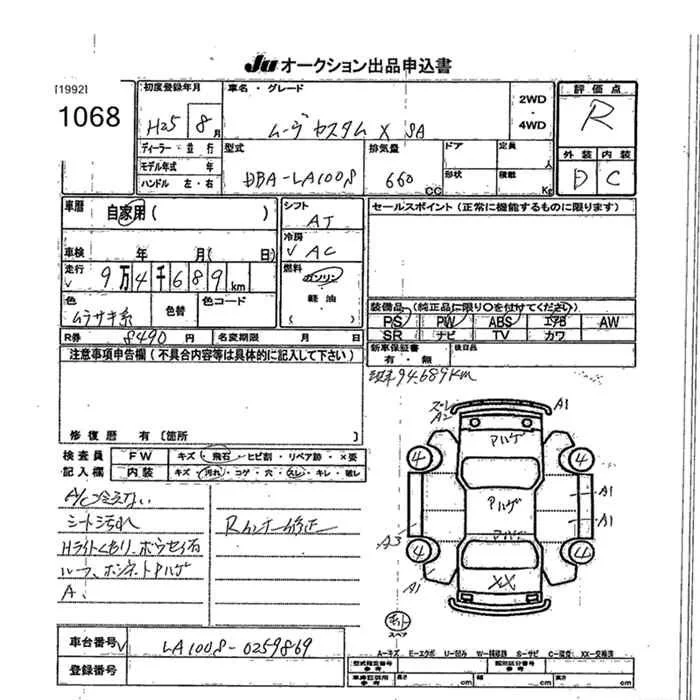 Ju オークション出品申込書
[1992]
1068
初度登録年月 車名・グレード 評価点
H25 8月 ムーヴ カスタム X SA 2WD・4WD R
ディーラー・並行 型式 排気量 ドア 定員 人 外装 内装
モデル年式 年 DBA-LA100S 660 CC 形状 積載 Kg D C
ハンドル 左・右
車歴 自家用 ( ) シフト AT セールスポイント(正常に機能するものに限ります)
車検 年 月( 日) 冷房 AC
走行 9万4千689km 燃料 ガソリン
色 ムラサキ系 色替 色コード 軽油
( )
装備品(純正品に限り○を付けてください)
PS PW ABS エアB AW
SR ナビ TV カワ
R券 8490円 名変期限 月 日
新車保証書 有・無 後日品
注意事項申告欄(不具合内容等は具体的に記入して下さい)
94.689Km
修復歴 有 [箇所 ]
検査員 FW キズ・飛石・ヒビ割・リペア跡・X要
記入欄 内装 キズ・汚れ・コゲ・穴・スレ・キレ・破レ
A/C冷えない
シート汚れ
Rコーナー修正
Hライトくもり、ホウセイ石
ルーフ、ボンネットPハゲ
A、
A1
A2
Pハゲ
4 4
Pハゲ A1
A3 Pハゲ A1
4 4
A1 XX
スペア
車台番号 LA100S-0259869
登録番号
A−キズ E−エクボ U−凹み W−補修跡 S−サビ C−腐食 XX−交換済
型式指定番号 参考 類別区分番号 参考
車庫証明用 参考 長さ cm 幅 cm 高さ cm